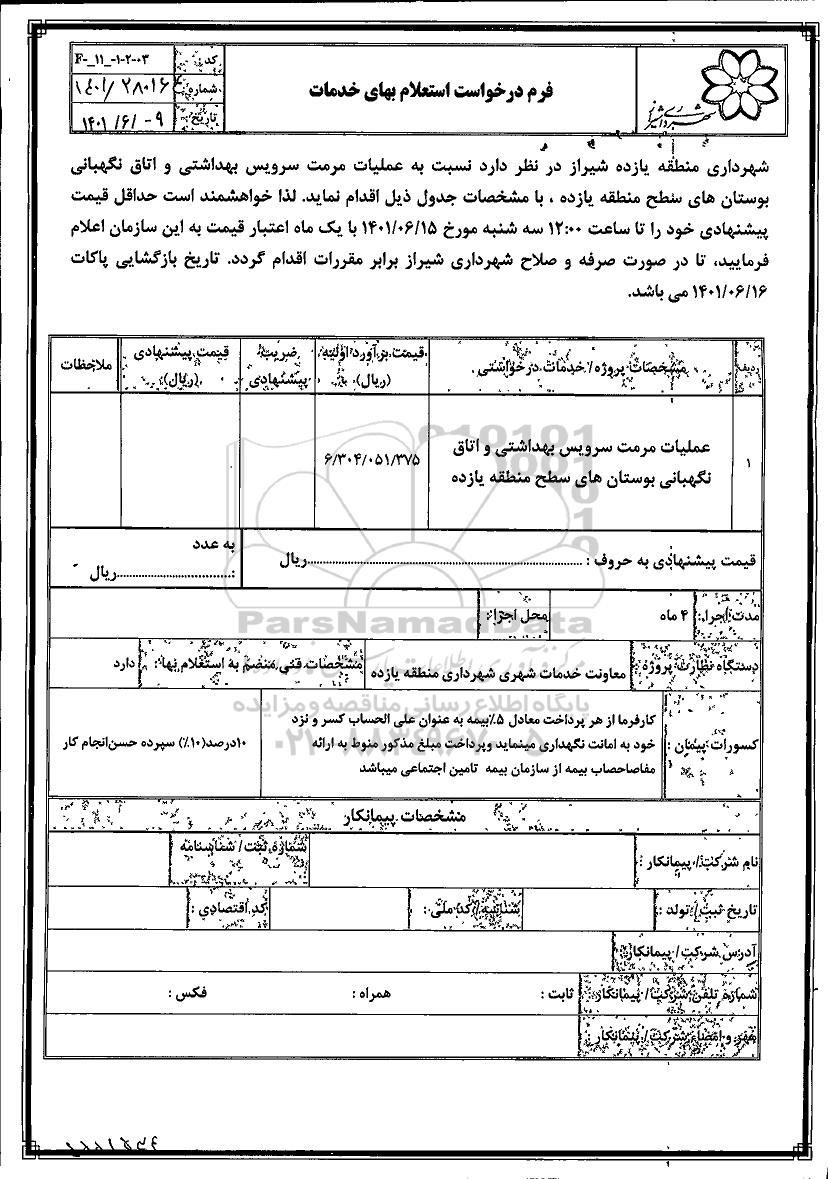 شهرداری شیراز
فرم درخواست استعلام بهای خدمات
کد: F-_11_-1-2-03
شماره: ۱۴۰۱/۲۸۰۱۶
تاریخ: ۱۴۰۱/۶/۰۹
شهرداری منطقه یازده شیراز در نظر دارد نسبت به عملیات مرمت سرویس بهداشتی و اتاق نگهبانی
بوستان های سطح منطقه یازده ، با مشخصات جدول ذیل اقدام نماید. لذا خواهشمند است حداقل قیمت
پیشنهادی خود را تا ساعت ۱۲:۰۰ سه شنبه مورخ ۱۴۰۱/۰۶/۱۵ با یک ماه اعتبار قیمت به این سازمان اعلام
فرمایید، تا در صورت صرفه و صلاح شهرداری شیراز برابر مقررات اقدام گردد. تاریخ بازگشایی پاکات
۱۴۰۱/۰۶/۱۶ می باشد.
ردیف
مشخصات پروژه/ خدمات درخواستی
قیمت برآورد اولیه
(ریال)
ضریب
پیشنهادی
قیمت پیشنهادی
(ریال)
ملاحظات
۱
عملیات مرمت سرویس بهداشتی و اتاق
نگهبانی بوستان های سطح منطقه یازده
۶/۳۰۴/۰۵۱/۳۷۵
قیمت پیشنهادی به حروف : ........................................ریال
به عدد
:..............................ریال
مدت اجرا: ۴ ماه
محل اجرا:
دستگاه نظارت پروژه: معاونت خدمات شهری شهرداری منطقه یازده
مشخصات فنی منضم به استعلام بها: دارد
کسورات پیمان :
کارفرما از هر پرداخت معادل ۵٪بیمه به عنوان علی الحساب کسر و نزد
خود به امانت نگهداری مینماید وپرداخت مبلغ مذکور منوط به ارائه
مفاصاحصاب بیمه از سازمان بیمه تامین اجتماعی میباشد
۱۰درصد(۱۰٪) سپرده حسن‌انجام کار
مشخصات پیمانکار
نام شرکت/ پیمانکار :
شماره ثبت/ شناسنامه
تاریخ ثبت/ تولد :
شناسه/ کد ملی :
کد اقتصادی :
آدرس شرکت/ پیمانکار:
شماره تلفن شرکت/ پیمانکار:
ثابت :
همراه :
فکس :
مهر و امضاء شرکت/ پیمانکار :
ParsNamadData
پایگاه اطلاع رسانی مناقصه و مزایده